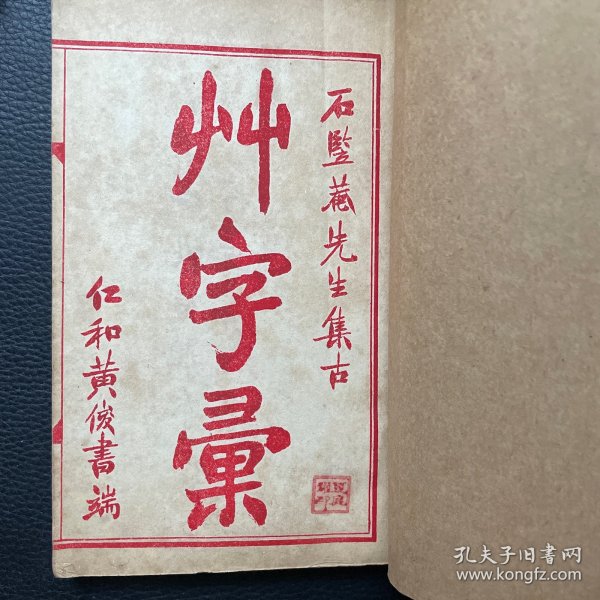 石竪菴先生集古
艸字彙
仁和黄俊書端
孔夫子旧书网
www.kongfz.com